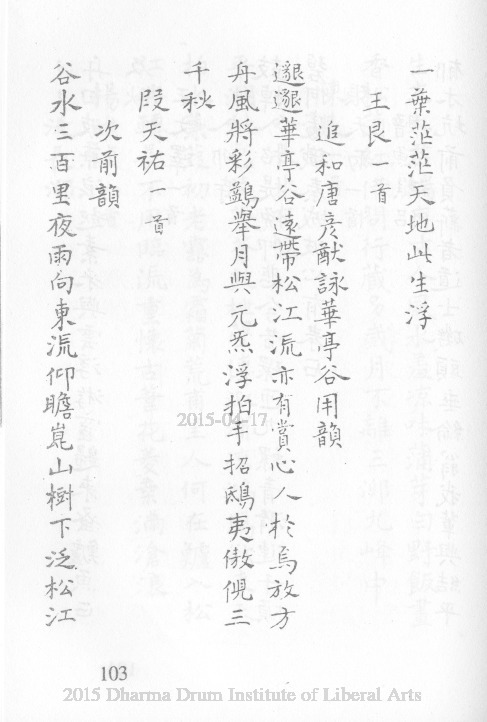 一葉茫茫天地此生浮
王艮一首
追和唐彥猷詠華亭谷用韻
邈邈華亭谷遠帶松江流亦有賞心人於焉放方
舟風將彩鷁舉月與元炁浮拍手招鴟夷傲俔三
千秋
段天祐一首
次前韻
谷水三百里夜雨向東流仰瞻崑山樹下泛松江
2015-04-17
103
2015 Dharma Drum Institute of Liberal Arts